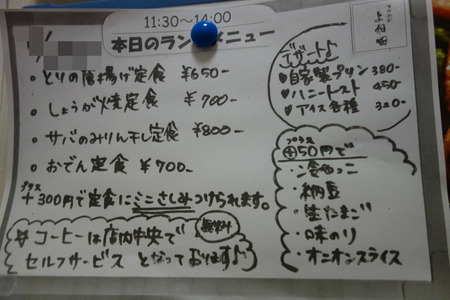 11:30~14:00
本日のランチメニュー
・とりの唐揚げ定食 ¥650-
・しょうが焼定食 ¥700-
・サバのみりん干し定食 ¥800-
・おでん定食 ¥700-
プラス
+300円で定食にミニさしみつけられます。
無料
#コーヒーは店内中央で
セルフサービス となっております♪
デザート♪
♥自家製プリン 380-
♥ハニートースト 450-
♥アイス各種 320-
プラス
⊕50円で
・納豆
・生たまご
・味のり
・オニオンスライス